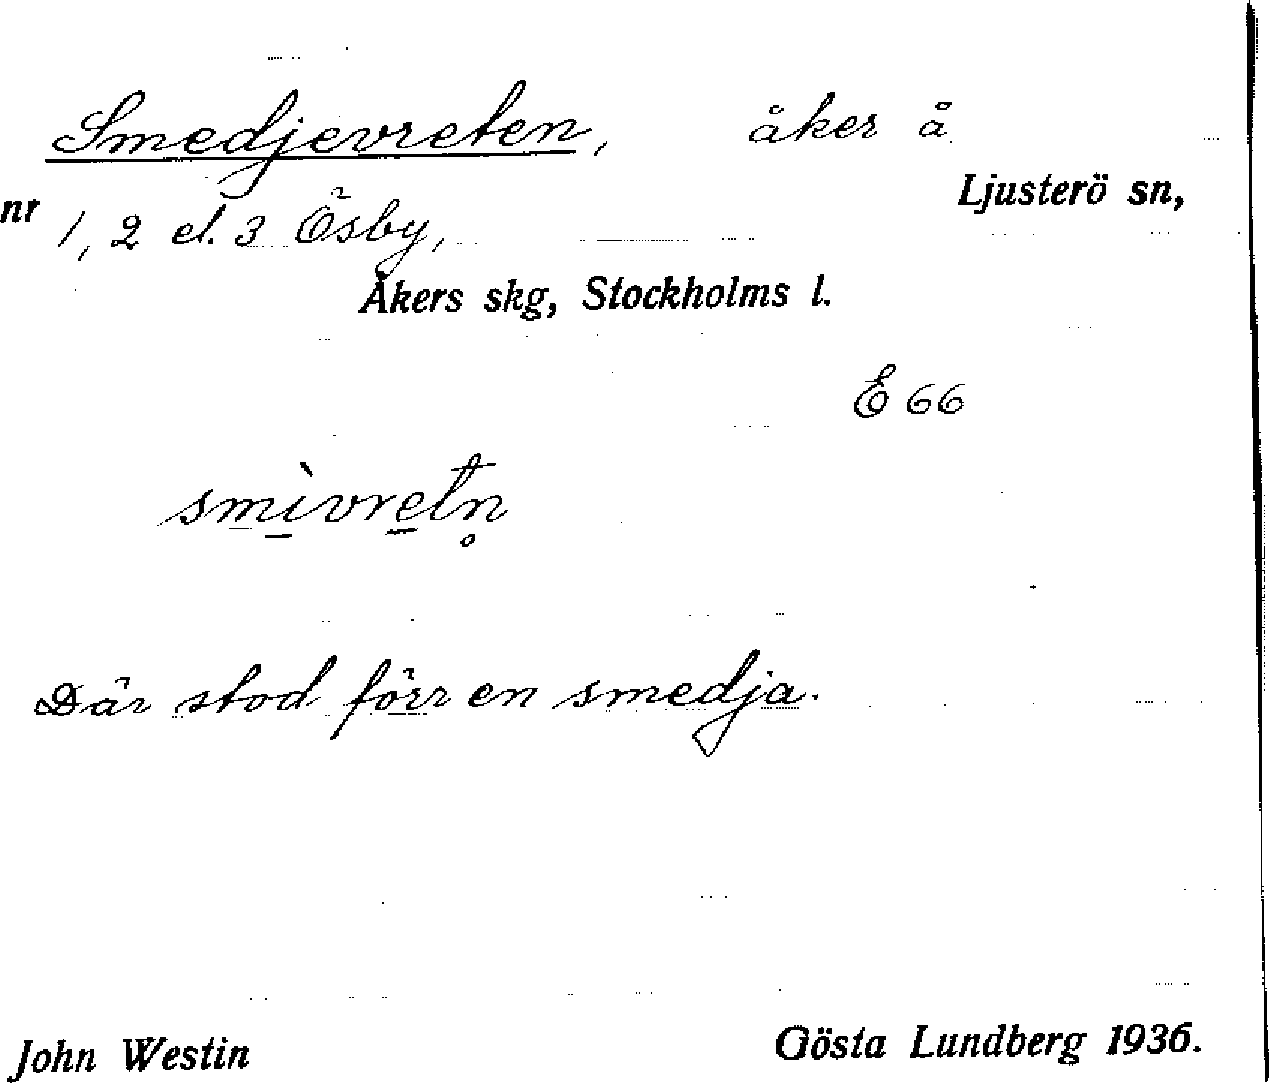 Smedjevreten, åker å
Ljusterö sn,
nr 1, 2 el. 3 Ösby,
Åkers skg, Stockholms l.
E 66
smìvretn̥
Där stod förr en smedja.
John Westin Gösta Lundberg 1936.